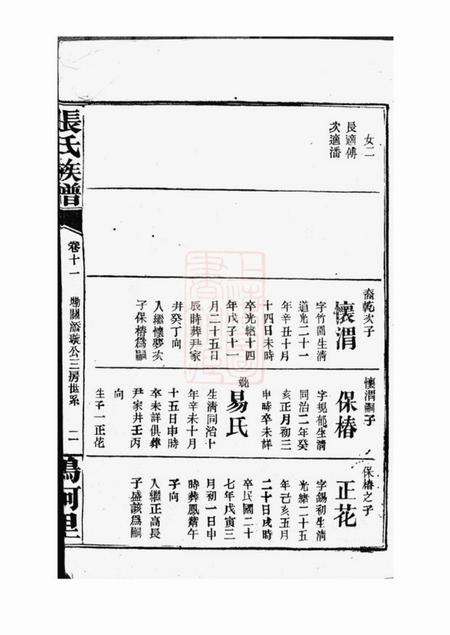 女二
長適傅
次適潘
裔乾次子
懷渭
字竹園生清
道光二十一
年辛丑十月
十四日未時
卒光緒十四
年戊子十一
月二十五日
辰時葬尹家
井癸丁向
入繼懷夢次
子保椿為嗣
懷渭嗣子
保椿
字規郁生清
同治二年癸
亥正月初三
申時卒未詳
娩
易氏
生清同治十
年辛未十月
十五日申時
卒未詳俱葬
尹家井壬丙
向
生子一正花
保椿之子
正花
字錫初生清
光緒二十五
年己亥五月
二十日戌時
卒民國二十
七年戊寅三
月初一日申
時葬鳳嘴午
子向
入繼正高長
子盛該為嗣
張氏族譜
卷十一
公三房世系
二一
河里